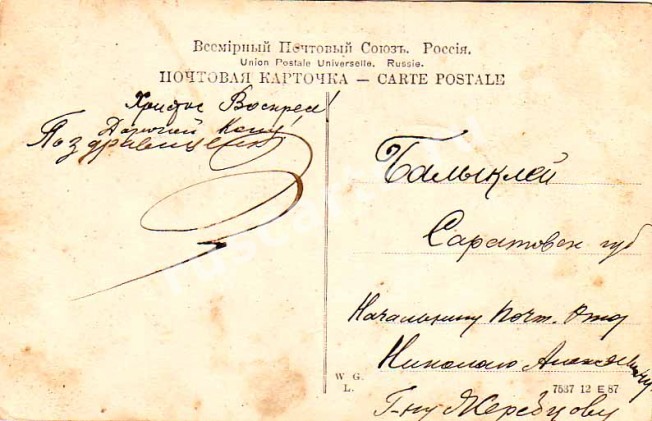 Всемірный Почтовый Союзъ. Россія.
Union Postale Universelle. Russie.
ПОЧТОВАЯ КАРТОЧКА — CARTE POSTALE
Христос Воскрес!
Дорогой
Балыклей
Саратовск губ
Начальнику Почт. Отд
Николаю Алексеевичу
Г-ну Жеребцову
W G.
L.
7537 12 E 87